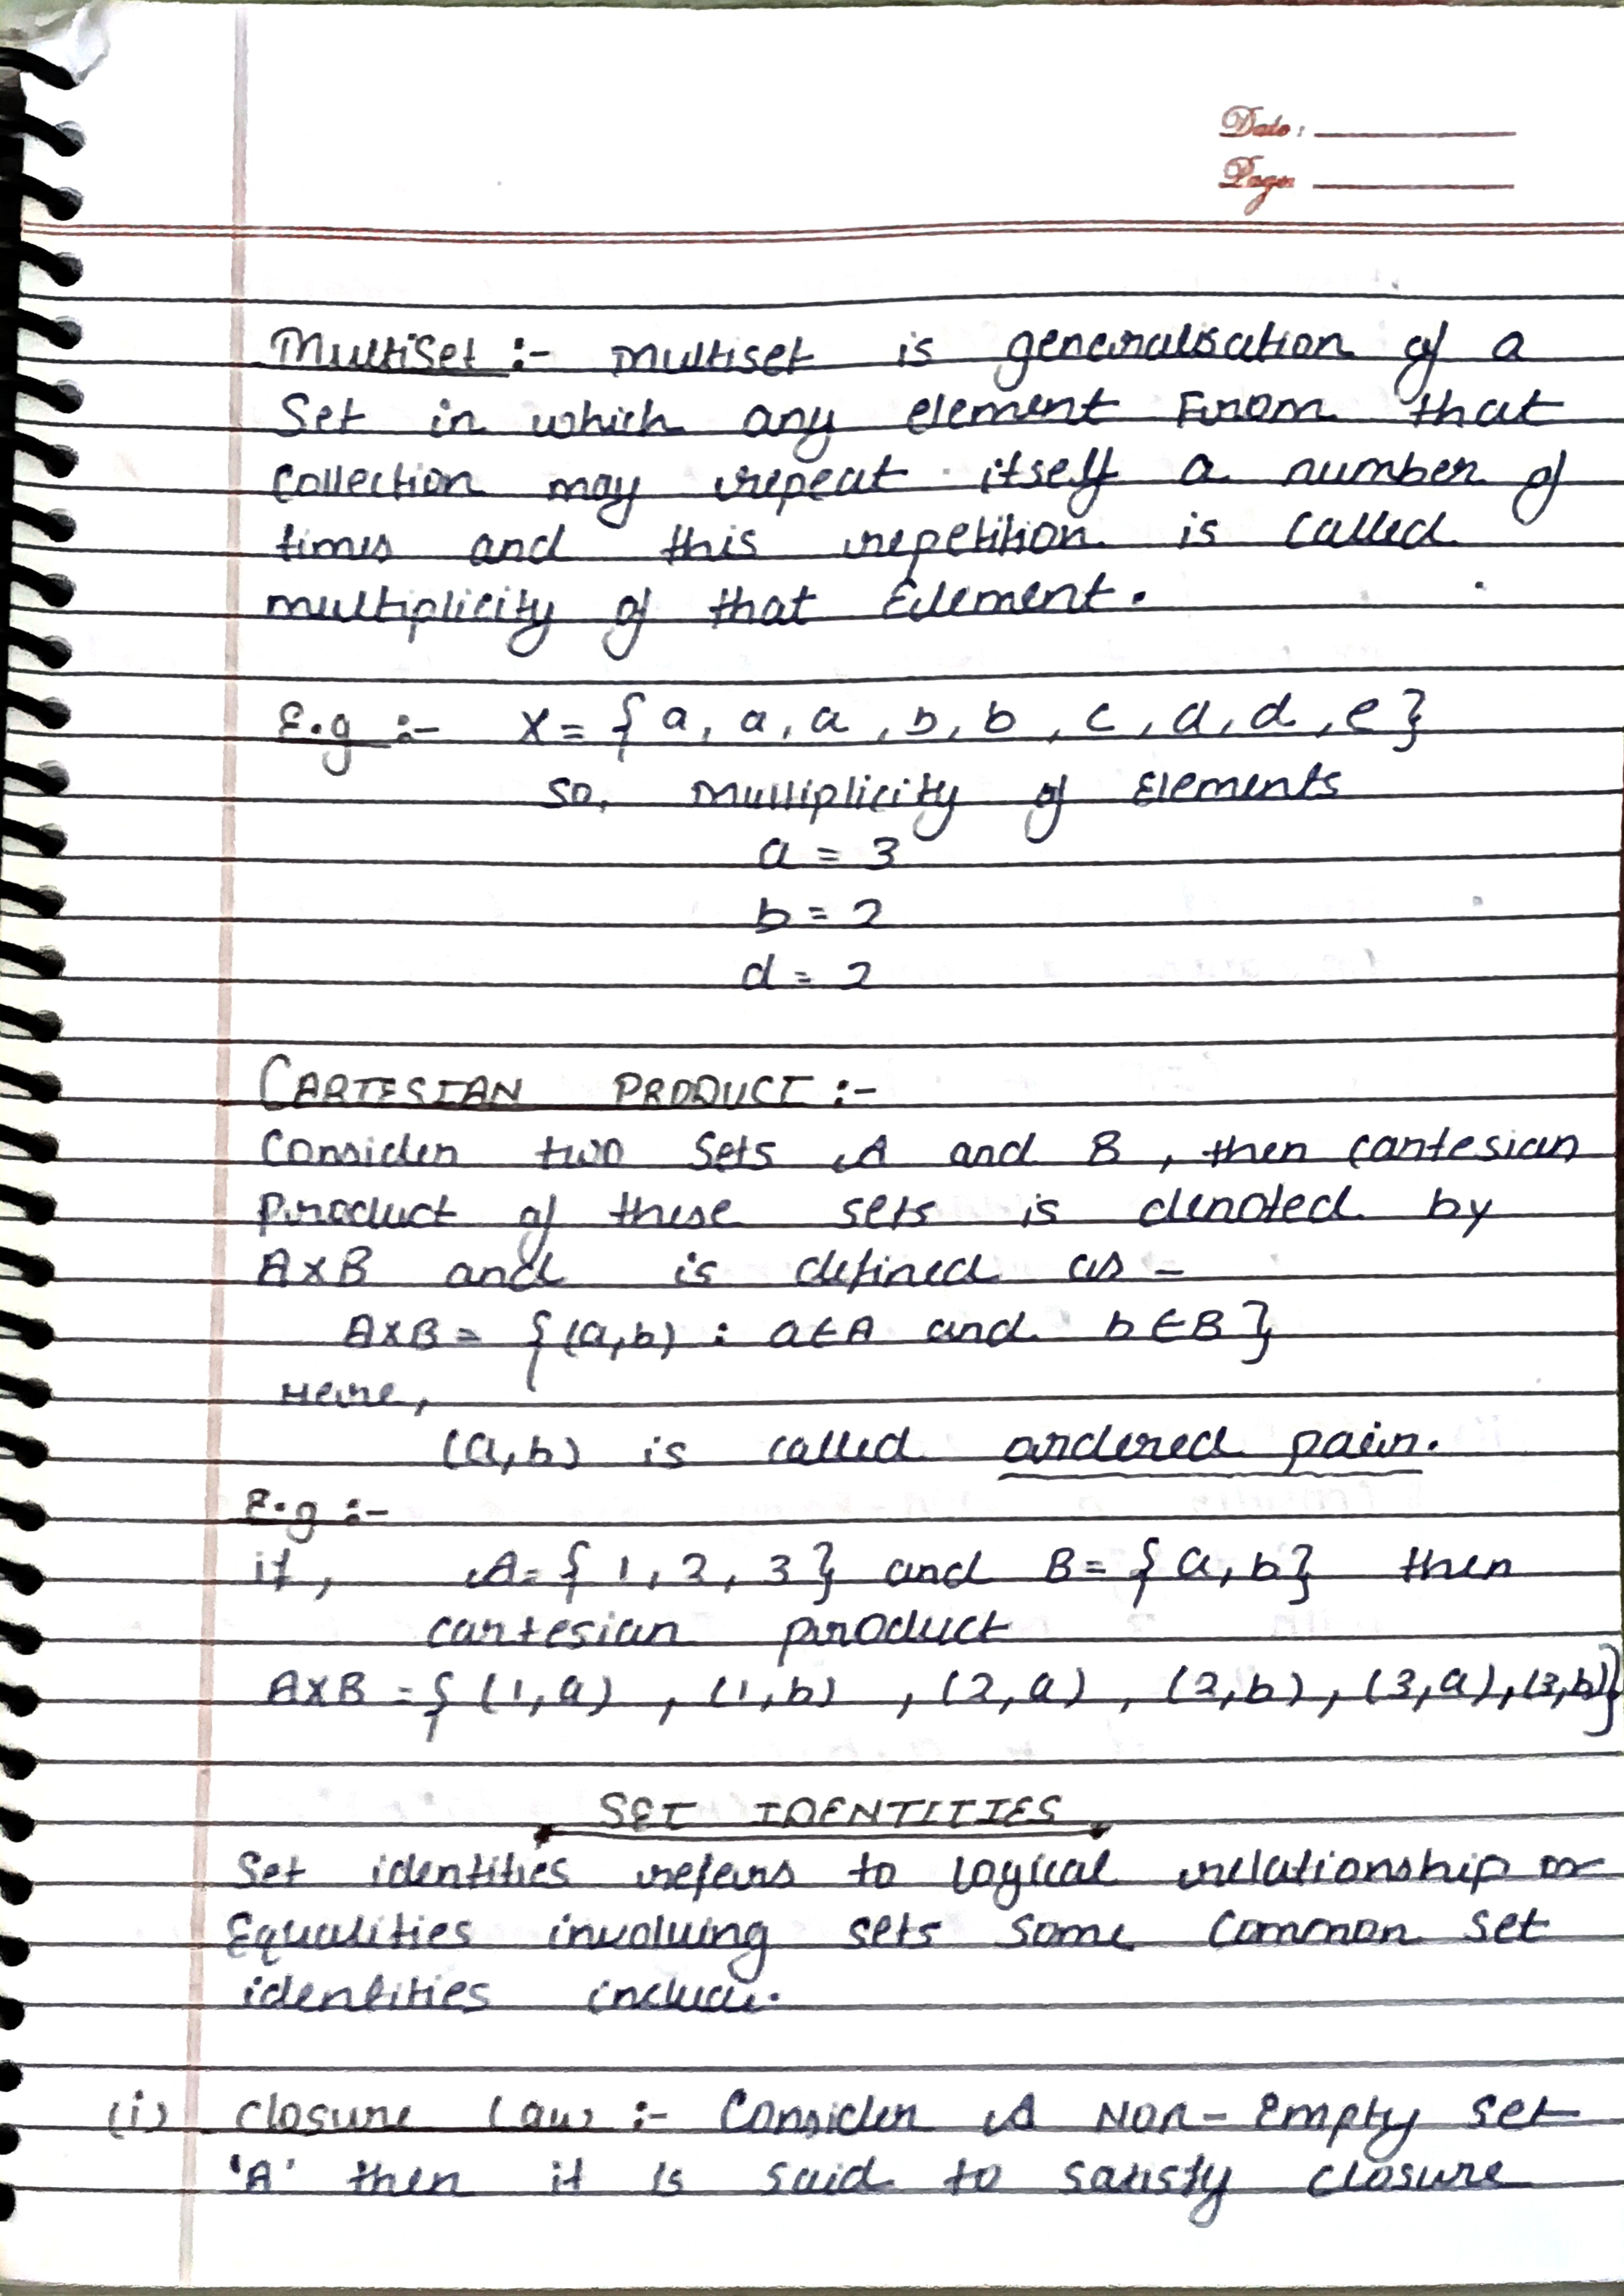 Date:
Page
Multiset :- Multiset is generalisation of a
Set in which any element From that
collection may repeat itself a number of
times and this repetition is called
multiplicity of that Element.
E.g :- X = { a, a, a, b, b, c, d, d, e }
so, Multiplicity of Elements
a = 3
b = 2
d = 2
CARTESIAN PRODUCT :-
Consider two Sets A and B, then cartesian
Product of these sets is denoted by
AXB and is defined as -
AXB = {(a,b) : a∈A and b∈B}
Here,
(a,b) is called ordered pair.
E.g :-
if, A = { 1, 2, 3 } and B = { a, b } then
cartesian product
AXB = { (1,a) , (1,b) , (2,a) , (2,b) , (3,a), (3,b)}
SET IDENTITIES
Set identities refers to logical relationship or
Equalities involving sets some common set
identities include.
(i) Closure Law :- Consider A Non-Empty Set
'A' then it is said to satisfy closure